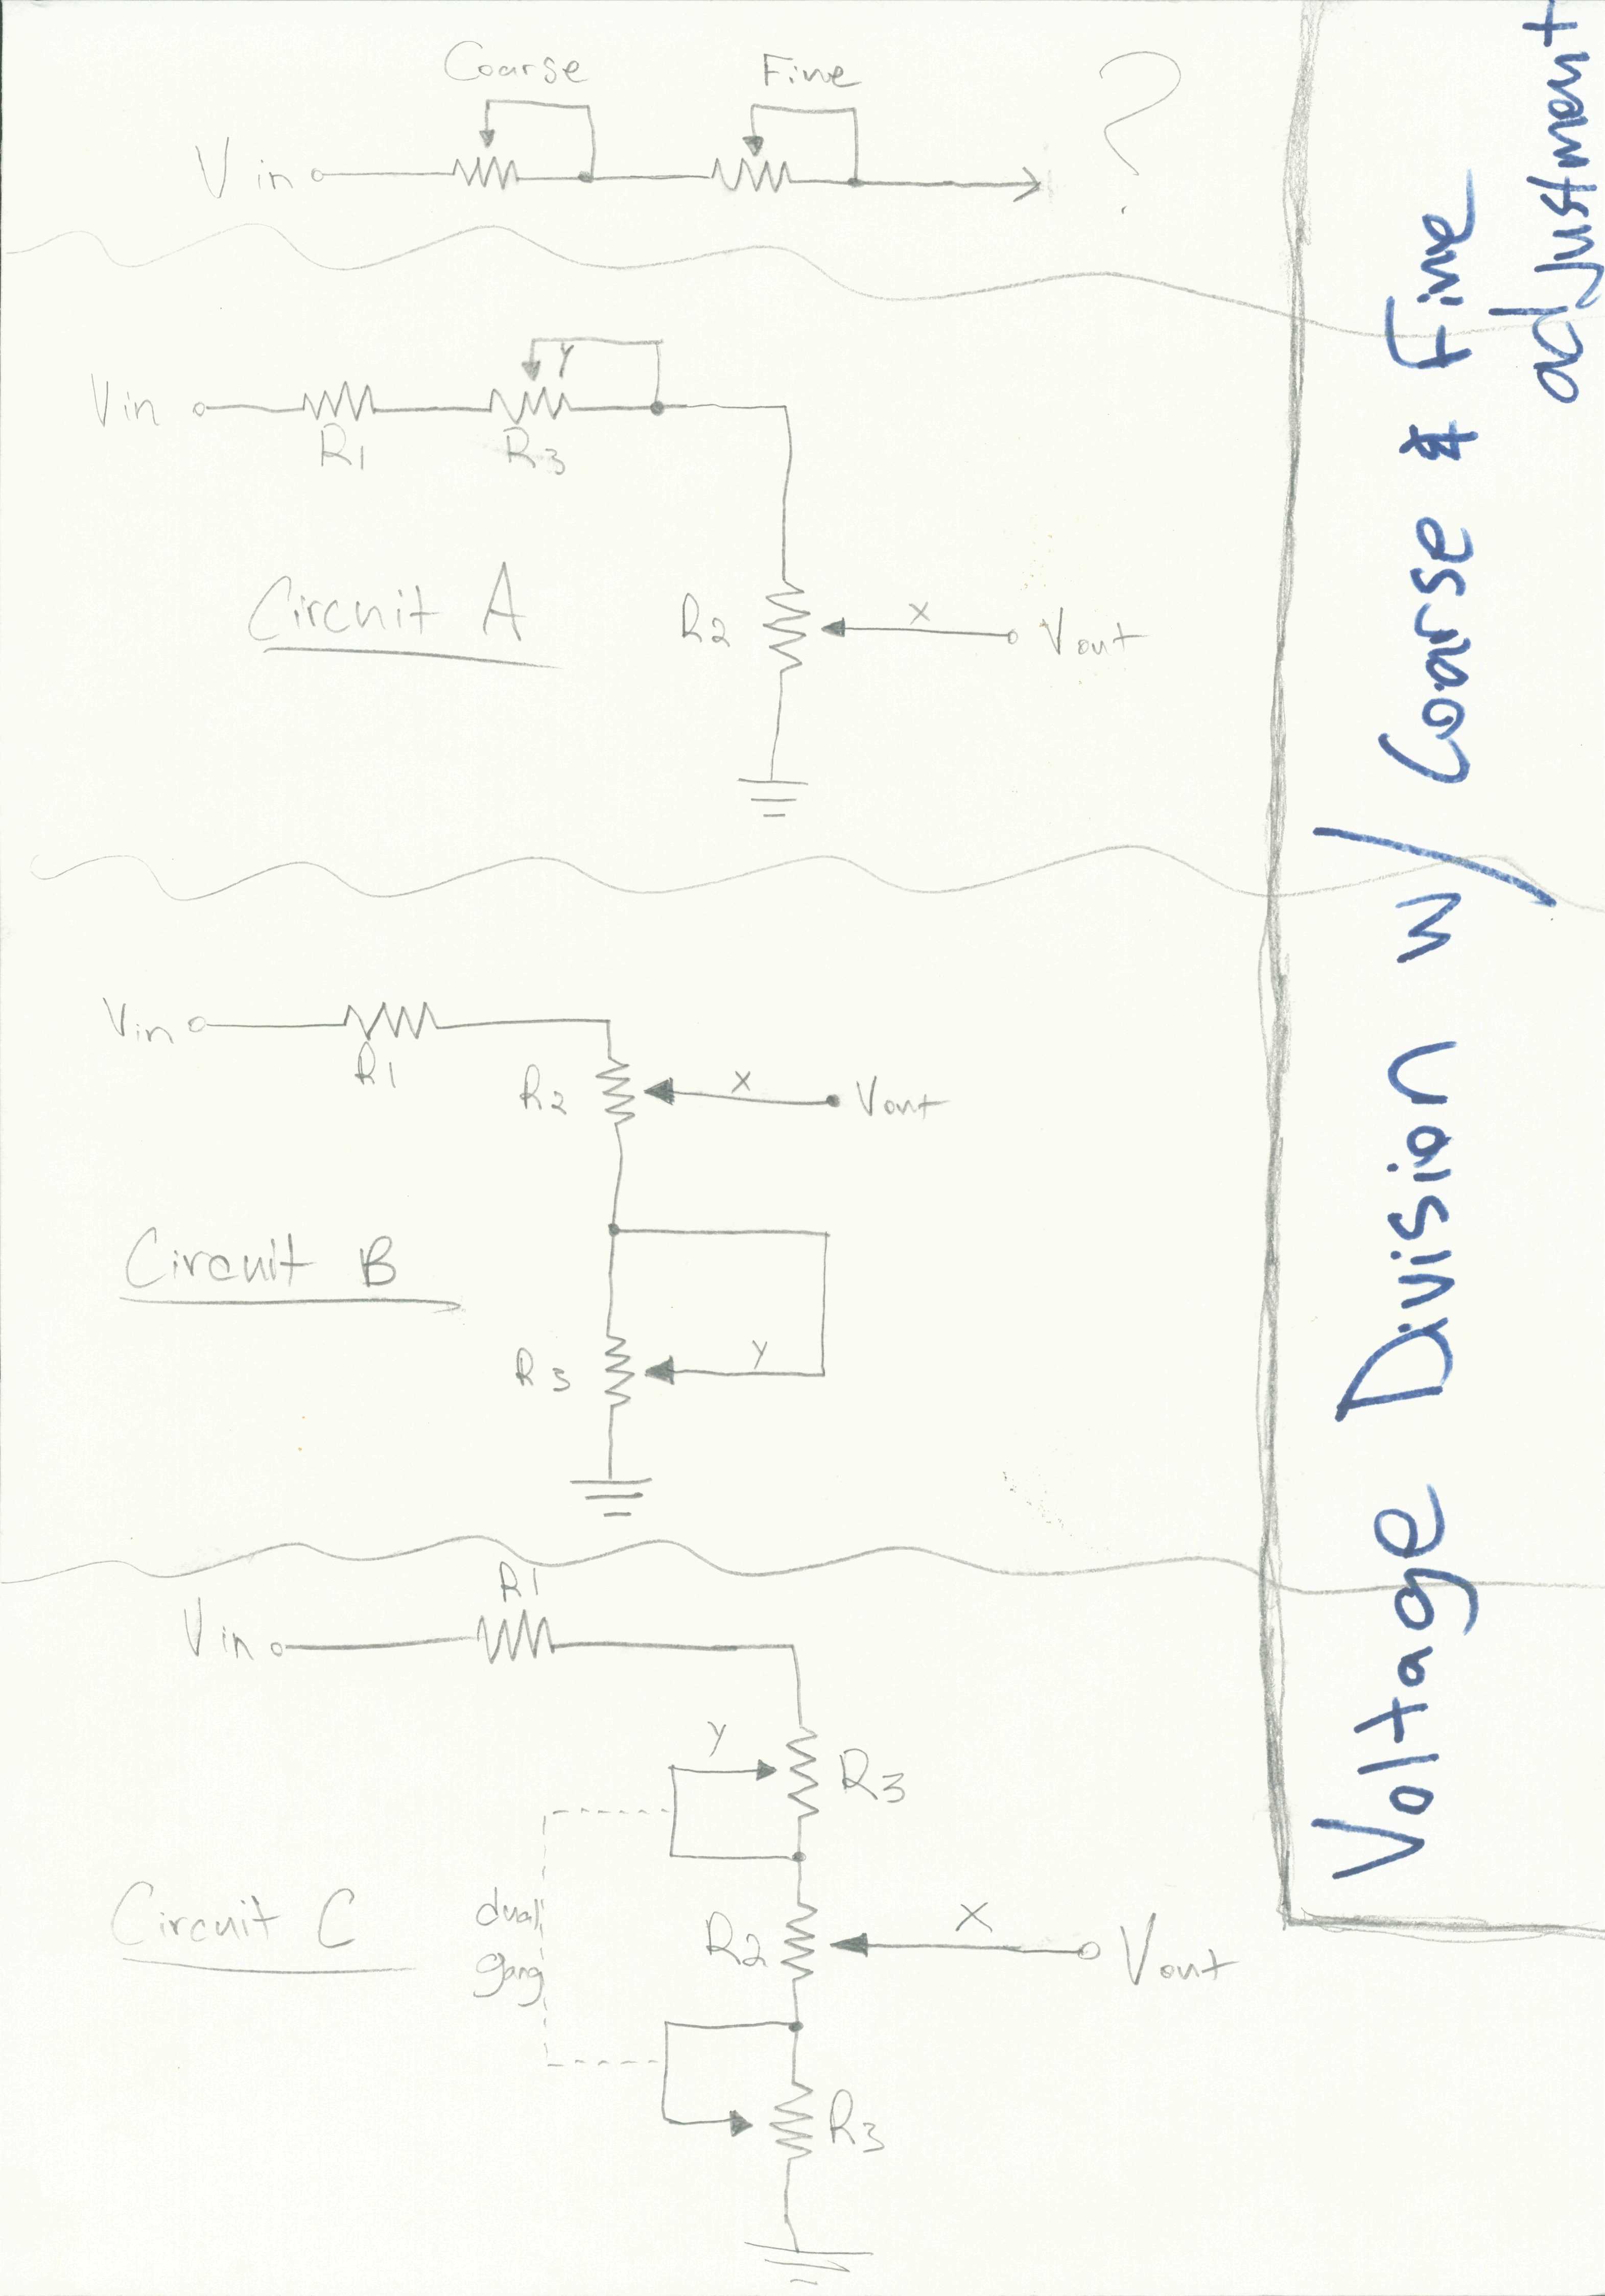 Coarse Fine
Vin ?
Vin R1 R3 Y
Circuit A R2 X Vout
Vin R1
R2 X Vout
Circuit B
R3 Y
R1
Vin
Y R3
Circuit C dual gang R2 X Vout
R3
Voltage Division w/ Coarse & Fine
adjustment